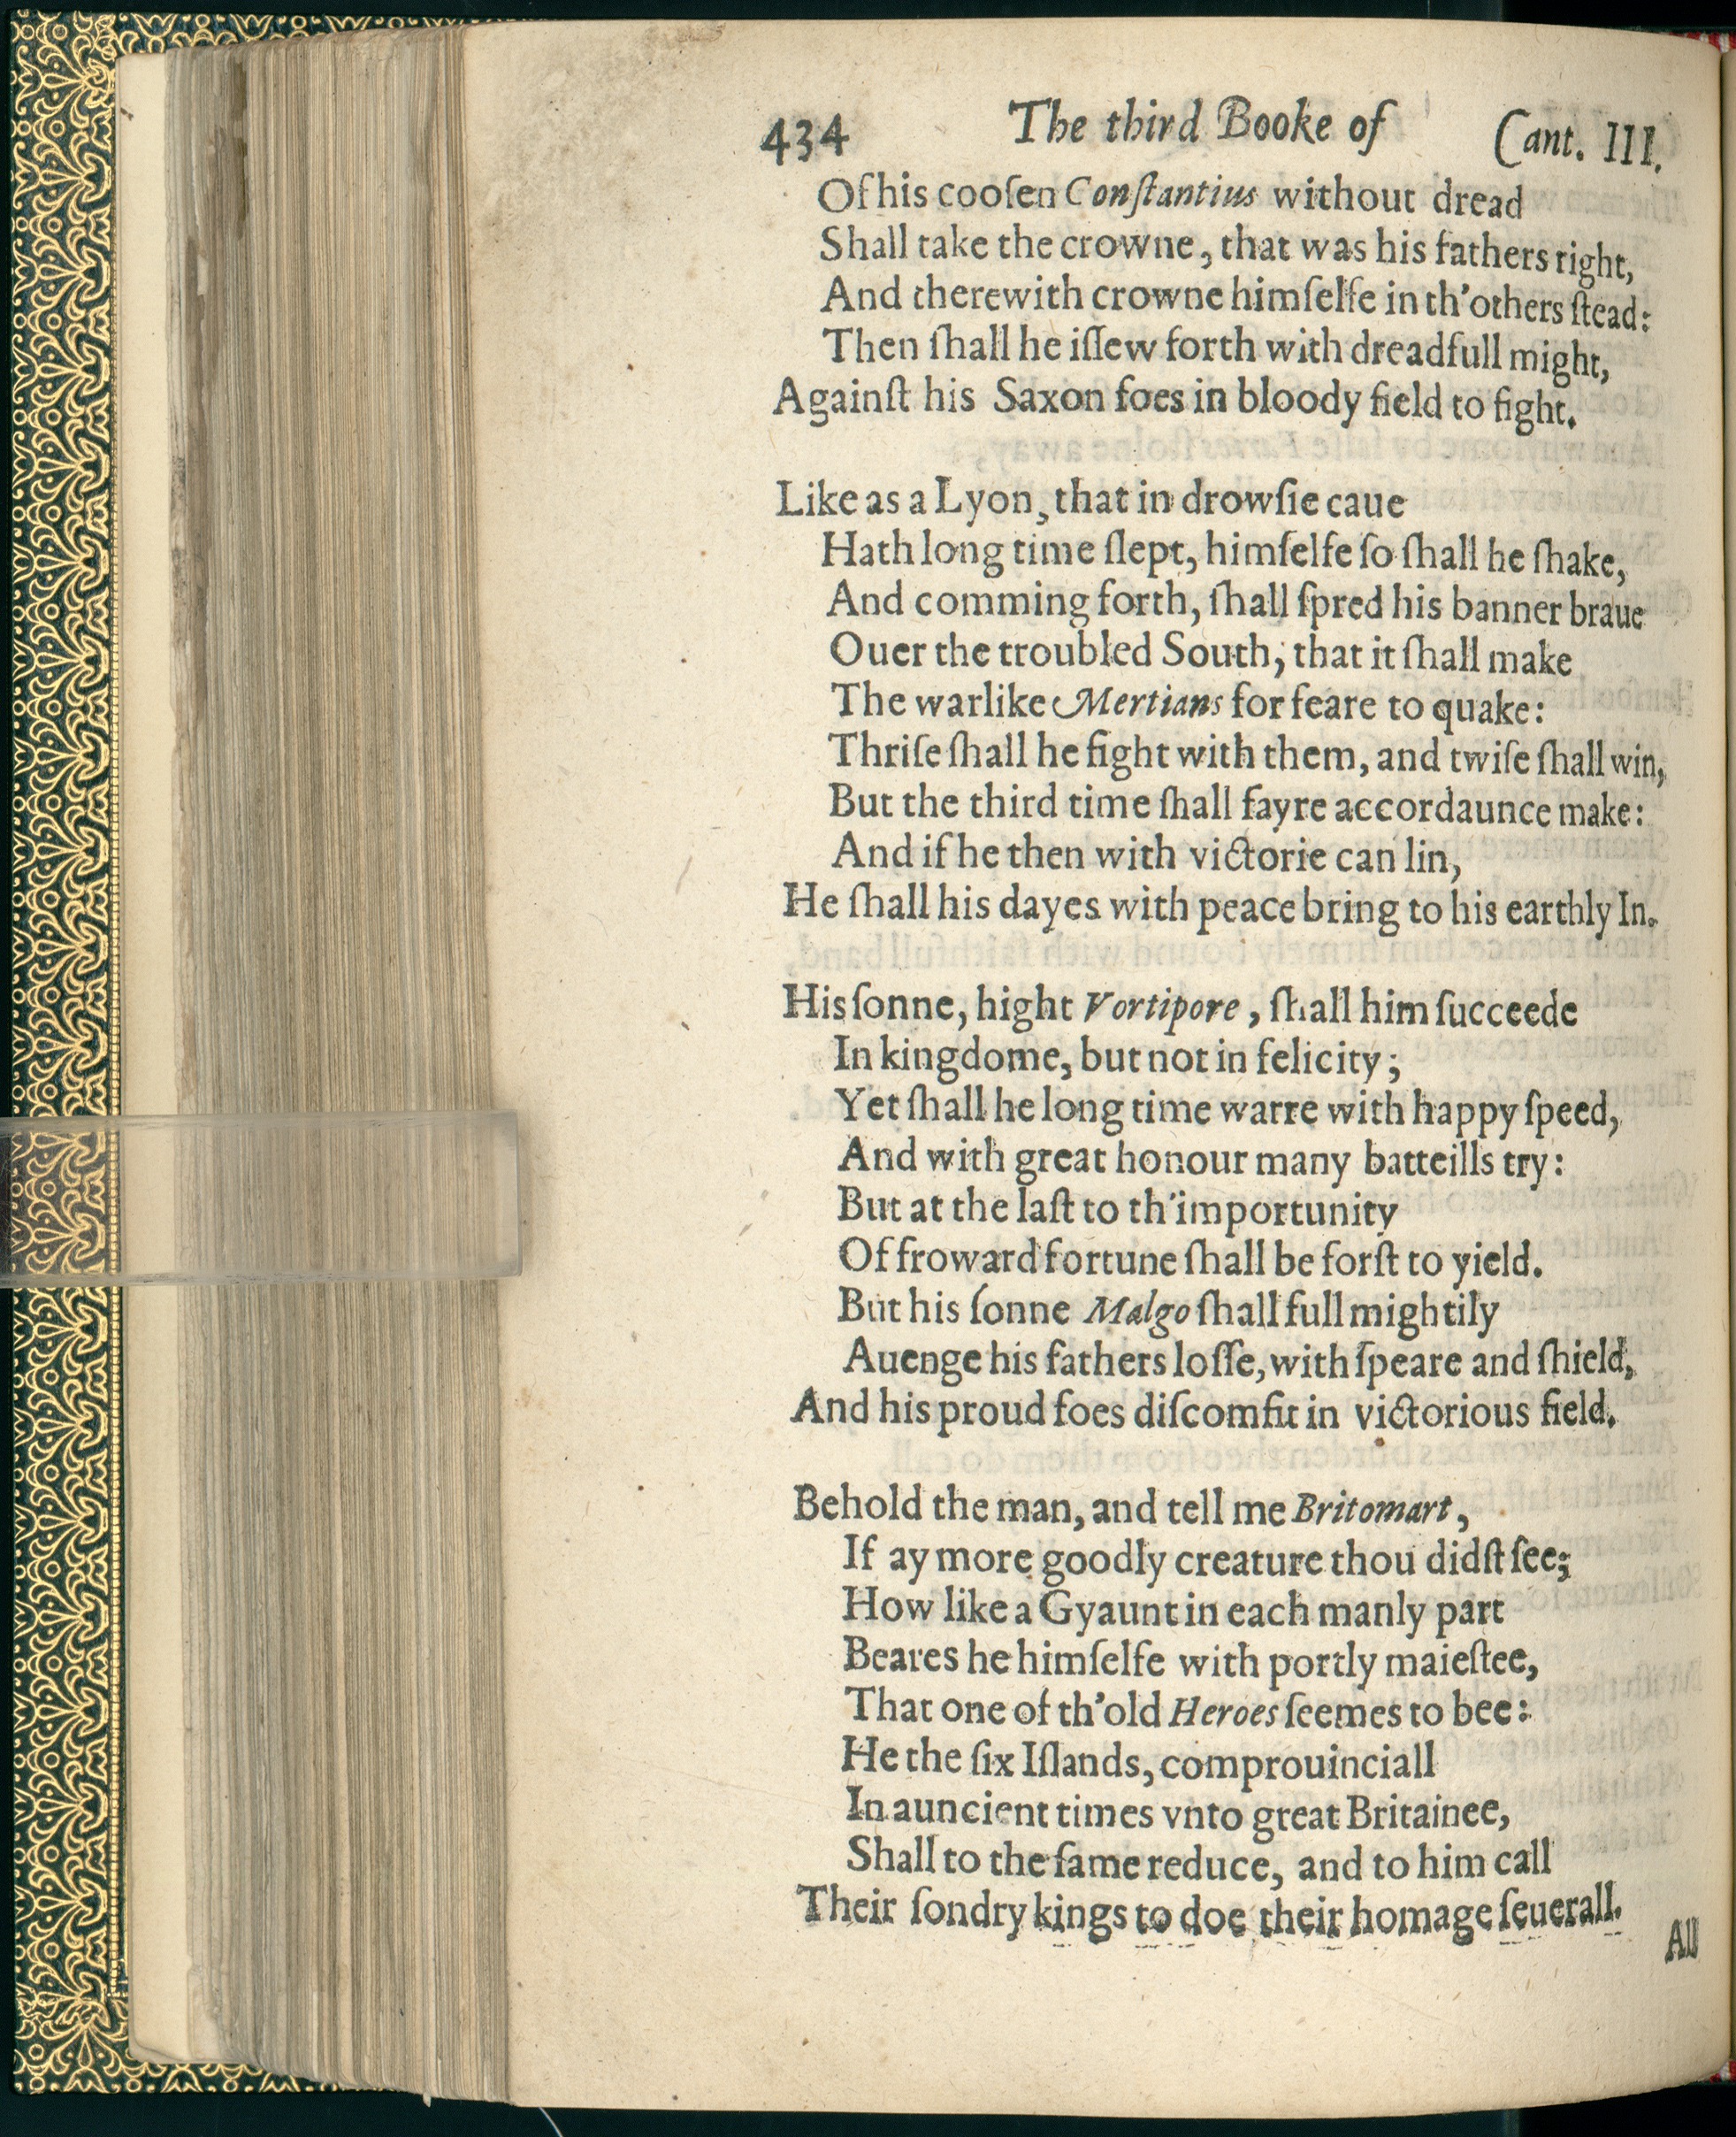 434 The third Booke of Cant. III.
Of his cooſen Conſtantius without dread
Shall take the crowne, that was his fathers right,
And therewith crowne himſelfe in th'others ſtead:
Then ſhall he iſſew forth with dreadfull might,
Againſt his Saxon foes in bloody field to fight.
Like as a Lyon, that in drowſie caue
Hath long time ſlept, himſelfe ſo ſhall he ſhake,
And comming forth, ſhall ſpred his banner braue
Ouer the troubled South, that it ſhall make
The warlike Mertians for feare to quake:
Thriſe ſhall he fight with them, and twiſe ſhall win,
But the third time ſhall fayre accordaunce make:
And if he then with victorie can lin,
He ſhall his dayes with peace bring to his earthly In.
His ſonne, hight Vortipore, ſhall him ſucceede
In kingdome, but not in felicity;
Yet ſhall he long time warre with happy ſpeed,
And with great honour many batteills try:
But at the laſt to th'importunity
Of froward fortune ſhall be forſt to yield.
But his ſonne Malgo ſhall full mightily
Auenge his fathers loſſe, with ſpeare and ſhield,
And his proud foes diſcomfit in victorious field.
Behold the man, and tell me Britomart,
If ay more goodly creature thou didſt ſee;
How like a Gyaunt in each manly part
Beares he himſelfe with portly maieſtee,
That one of th'old Heroes ſeemes to bee:
He the ſix Iſlands, comprouinciall
In auncient times vnto great Britainee,
Shall to the ſame reduce, and to him call
Their ſondry kings to doe their homage ſeuerall.
All